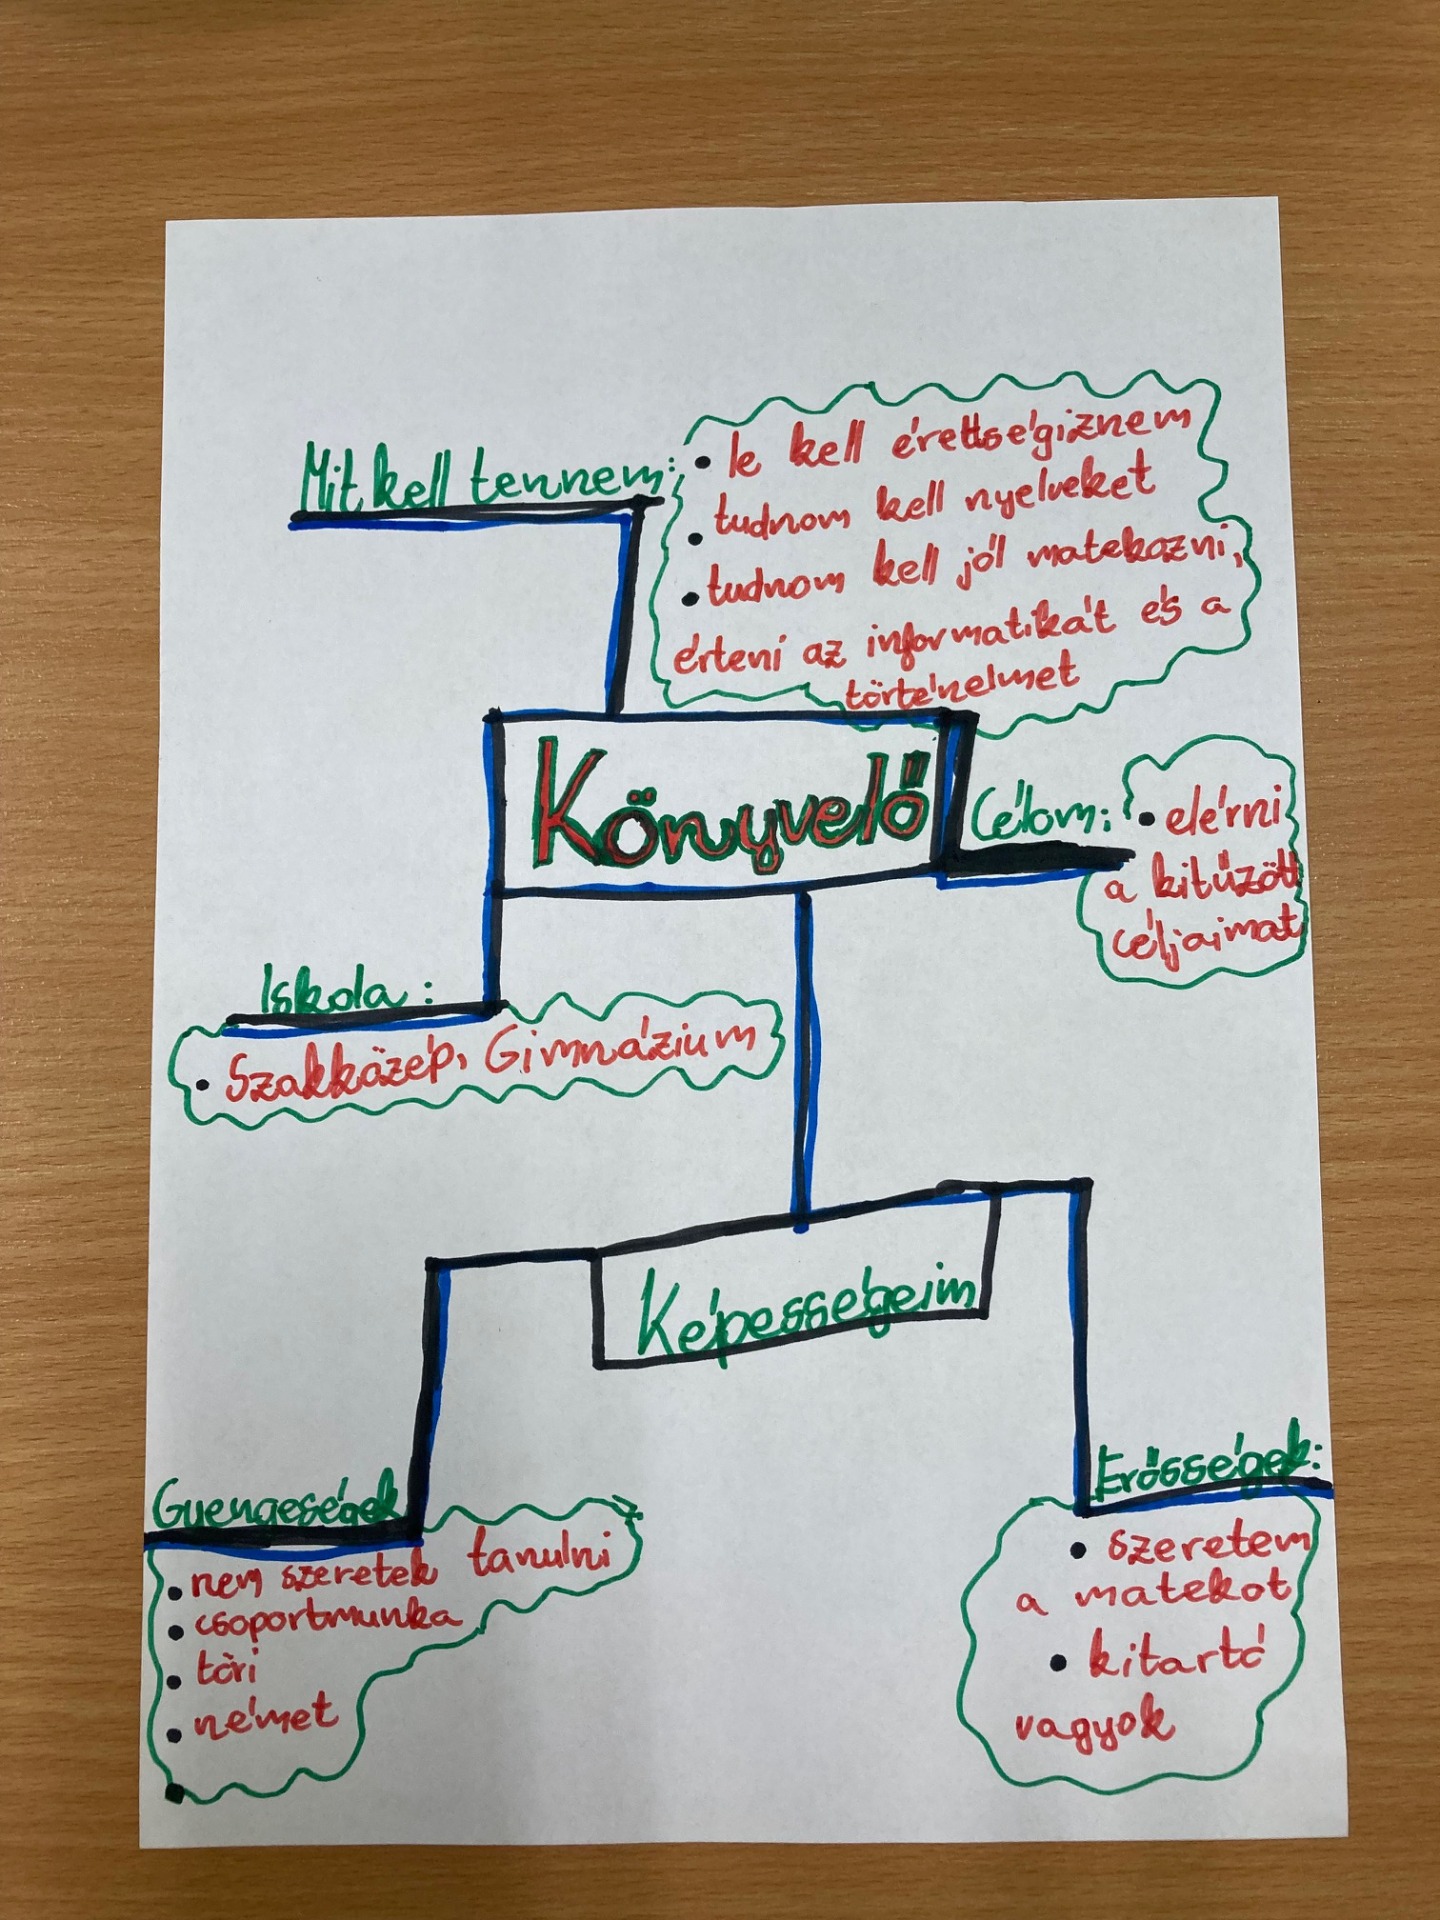 Mit kell tennem:
• le kell érettségiznem
• tudnom kell nyelveket
• tudnom kell jól matekozni,
érteni az informatikát és a
történelmet
Könyvelő
Célom:
• elérni
a kitűzött
céljaimat
Iskola:
• Szakközép, Gimnázium
Képességeim
Gyengeségek
• nem szeretek tanulni
• csoportmunka
• töri
• német
Erősségek:
• szeretem
a matekot
• kitartó
vagyok